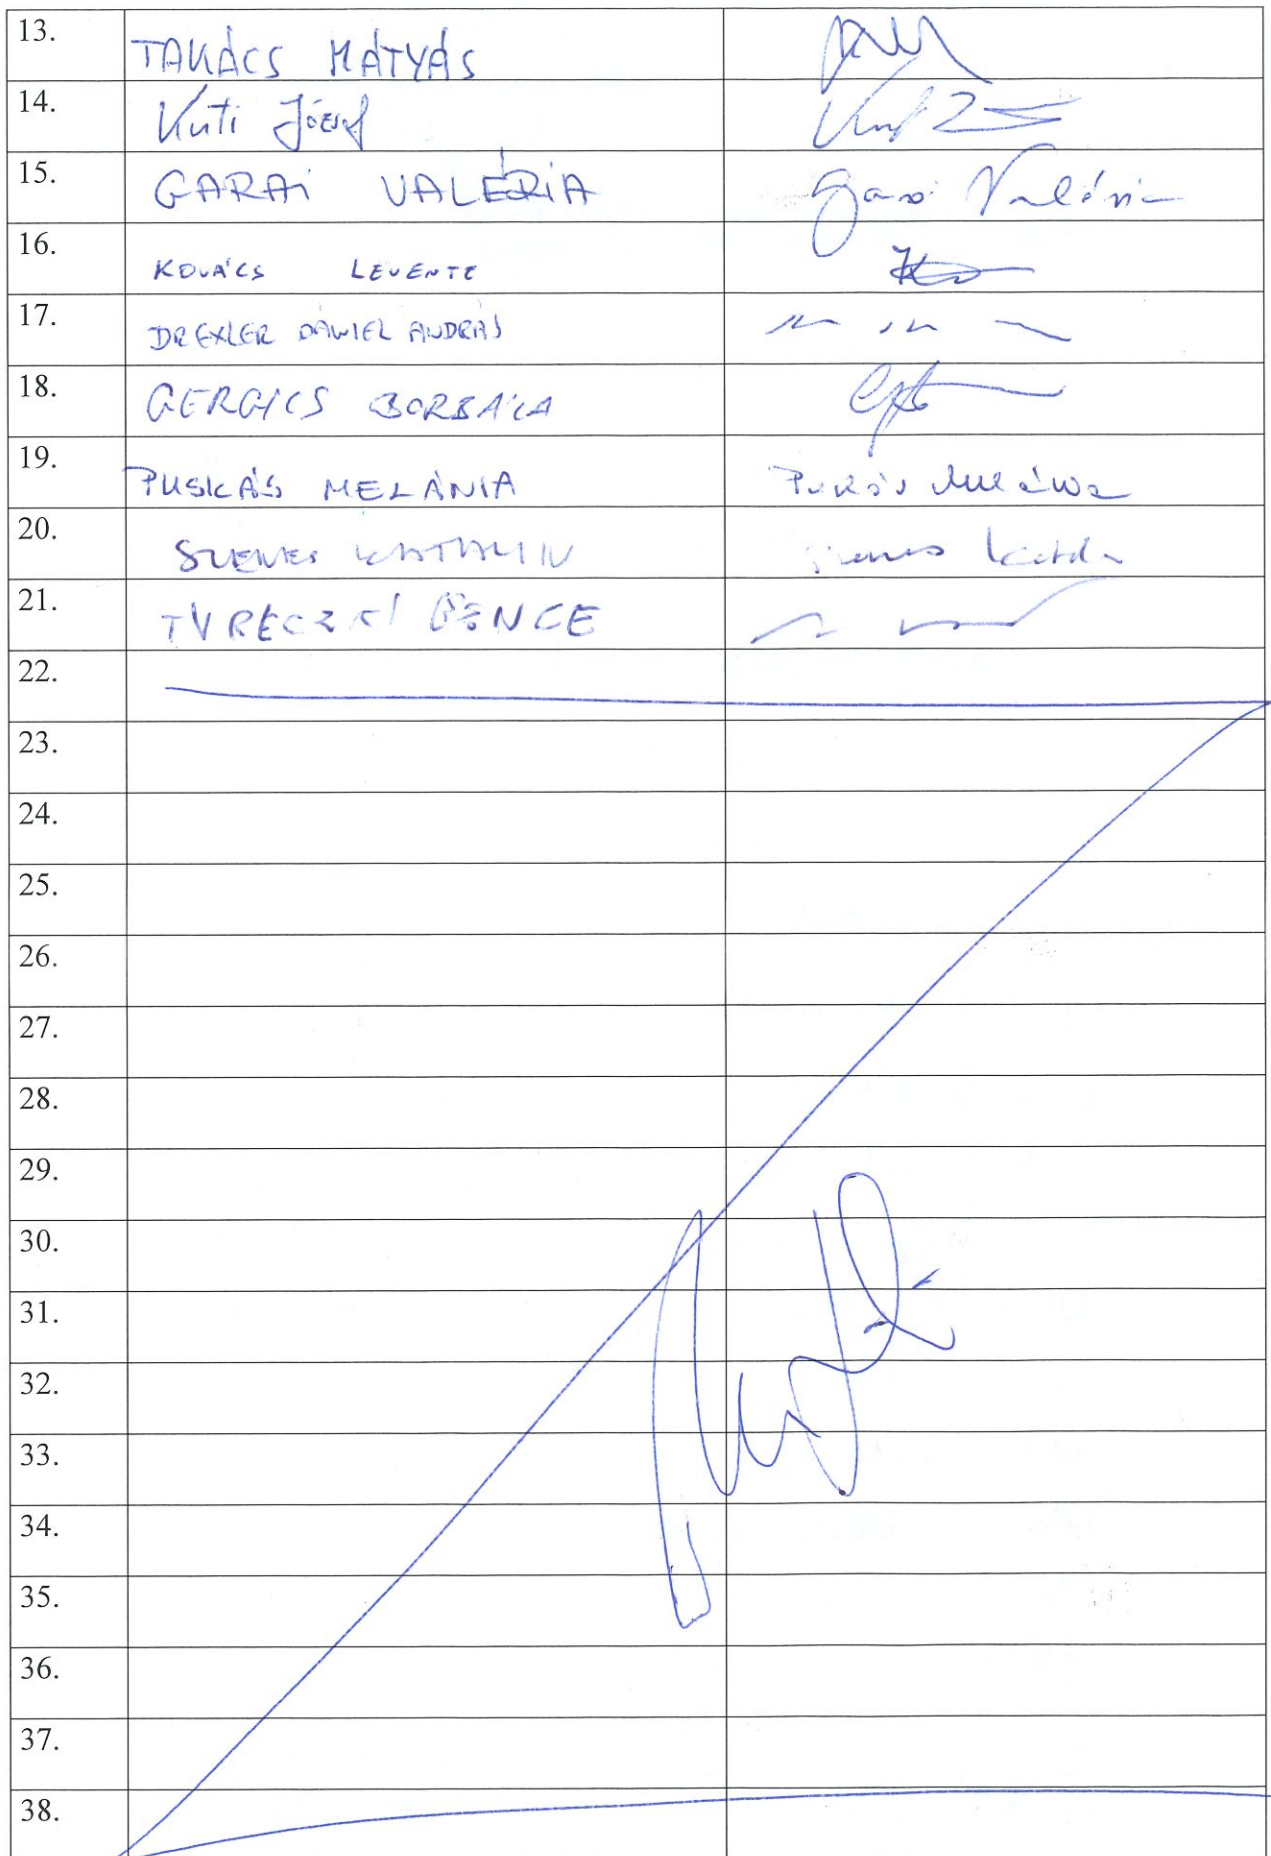 13. TAKÁCS MÁTYÁS
14. Kuti József
15. GARAI VALÉRIA Garai Valéria
16. KOVÁCS LEVENTE
17. DREXLER DÁNIEL ANDRÁS
18. GERGICS BORBÁLA
19. PUSKÁS MELÁNIA Puskás Melánia
20. SZENES KATALIN
21. TURECZKI BENCE
22.
23.
24.
25.
26.
27.
28.
29.
30.
31.
32.
33.
34.
35.
36.
37.
38.